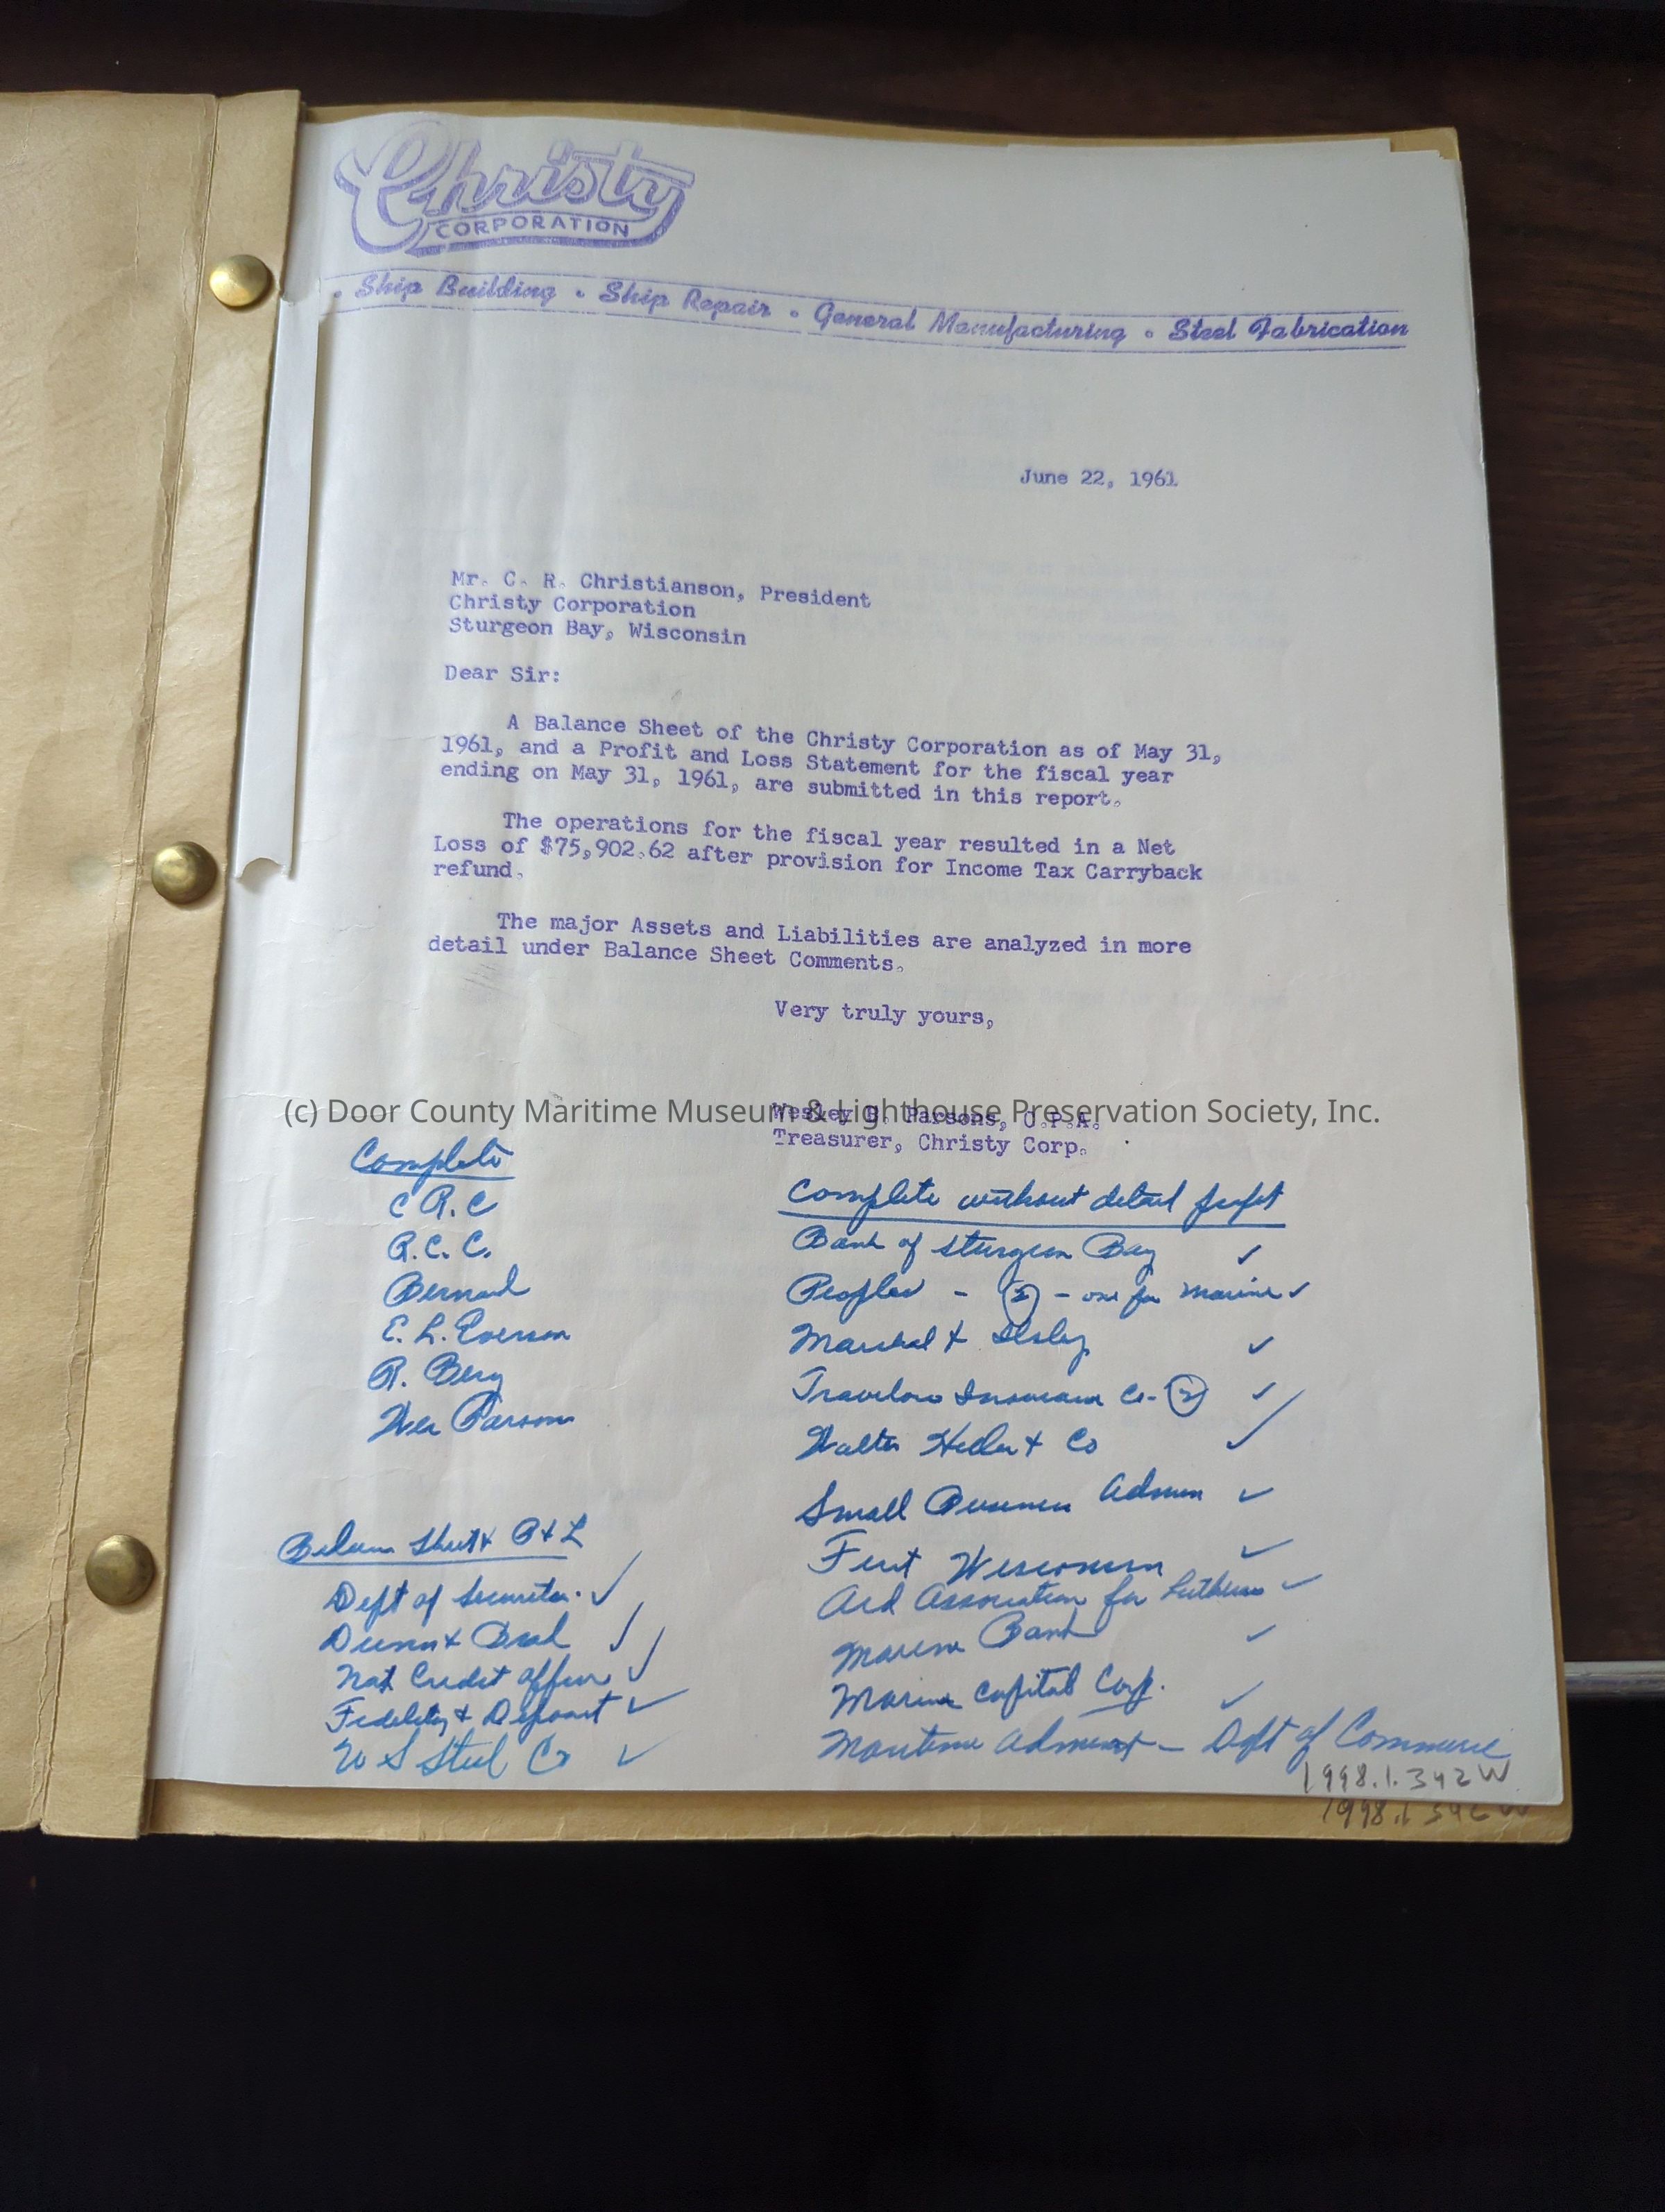 Christy
CORPORATION
• Ship Building • Ship Repair • General Manufacturing • Steel Fabrication
June 22, 1961
Mr. C. R. Christianson, President
Christy Corporation
Sturgeon Bay, Wisconsin
Dear Sir:
A Balance Sheet of the Christy Corporation as of May 31,
1961, and a Profit and Loss Statement for the fiscal year
ending on May 31, 1961, are submitted in this report.
The operations for the fiscal year resulted in a Net
Loss of $75,902.62 after provision for Income Tax Carryback
refund.
The major Assets and Liabilities are analyzed in more
detail under Balance Sheet Comments.
Very truly yours,
(c) Door County Maritime Museum & Lighthouse Preservation Society, Inc.
Wesley B. Parsons, C.P.A.
Treasurer, Christy Corp.
Complete
C R. C
R. C. C.
Bernard
E. L. Everson
R. Berg
Wes Parsons
Balance Sheet & P & L
Dept of Securities. ✓
Dunn & Brad ✓
Nat Credit Office ✓
Fidelity & Deposit ✓
U S Steel Co ✓
Complete without detail
Bank of Sturgeon Bay ✓
Peoples - (2) - one for Marine ✓
Marshal & Ilsley ✓
Travelers Insurance Co - (2) ✓
Walter Heller & Co ✓
Small Business Admin ✓
First Wisconsin ✓
Aid Association for Lutherans ✓
Marine Bank ✓
Marine Capital Corp. ✓
Maritime Admin - Dept of Commerce
1998.1.342W
1998.1.342W